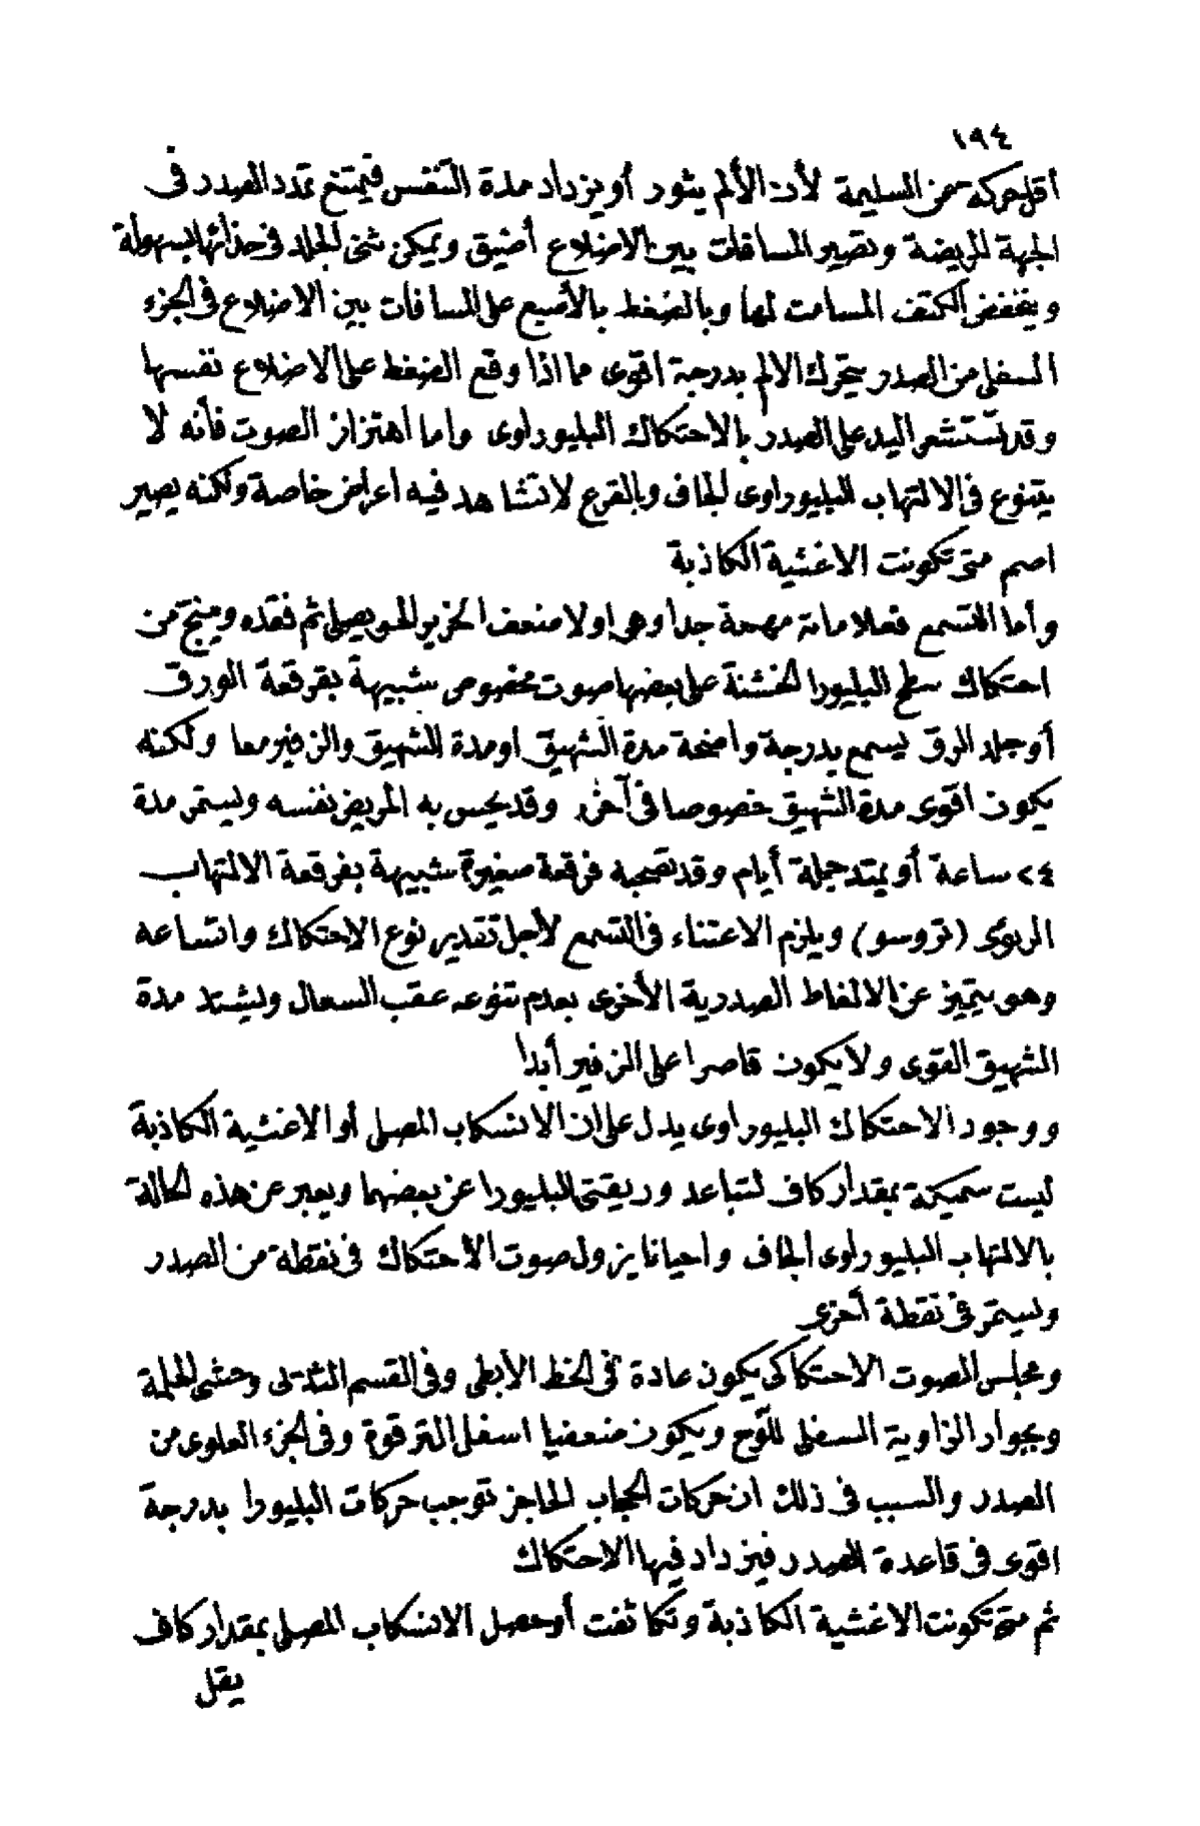 ١٩٤
أقل حركة من السليمة لأن الألم يثور أو يزداد مدة التنفس فيمتنع تمدد الصدر فى
الجهة المريضة وتصير المسافات بين الاضلاع أضيق ويمكن ثنى الجلد فى حذائها بسهولة
وينخفض الكتف المسامت لها وبالضغط بالأصبع على المسافات بين الاضلاع فى الجزء
السفلى من الصدر يتحرك الالم بدرجة اقوى مما اذا وقع الضغط على الاضلاع نفسها
وقد تستشعر اليد على الصدر بالاحتكاك البليوراوى واما اهتزاز الصوت فأنه لا
يتنوع فى الالتهاب البليوراوى الجاف وبالقرع لا تشاهد فيه اعراض خاصة ولكنه يصير
اصم متى تكونت الاغشية الكاذبة
وأما التسمع فعلاماته مهمة جدا وهى اولا ضعف الخرير الحويصلى ثم فقده وينتج من
احتكاك سطح البليورا الخشنة على بعضها صوت مخصوص شبيهة بقرقعة الورق
أو جلد الرق يسمع بدرجة واضحة مدة الشهيق او مدة الشهيق والزفير معا ولكنه
يكون اقوى مدة الشهيق خصوصا فى آخره وقد يحس به المريض نفسه ويستمر مدة
٢٤ ساعة أو يمتد جملة أيام وقد تصحبه فرقعة صغيرة شبيهة بفرقعة الالتهاب
الرئوى (تروسو) ويلزم الاعتناء فى التسمع لأجل تقدير نوع الاحتكاك واتساعه
وهو يتميز عن الالغاط الصدرية الأخرى بعدم تنوعه عقب السعال ويشتد مدة
الشهيق القوى ولا يكون قاصرا على الزفير أبدا
ووجود الاحتكاك البليوراوى يدل على ان الانسكاب المصلى أو الاغشية الكاذبة
ليست سميكة بمقدار كاف لتباعد وريقتى البليورا عن بعضهما ويعبر عن هذه الحالة
بالالتهاب البليوراوى الجاف واحيانا يزول صوت الاحتكاك فى نقطة من الصدر
ويستمر فى نقطة أخرى
ومجلس الصوت الاحتكاكى يكون عادة فى الخط الأبطى وفى القسم الثديى وحشى الحلمة
وبجوار الزاوية السفلى للوح ويكون ضعيفا اسفل الترقوة وفى الجزء العلوى من
الصدر والسبب فى ذلك ان حركات الحجاب الحاجز توجب حركات البليورا بدرجة
اقوى فى قاعدة الصدر فيزداد فيها الاحتكاك
ثم متى تكونت الاغشية الكاذبة وتكاثفت أو حصل الانسكاب المصلى بمقدار كاف
يقل